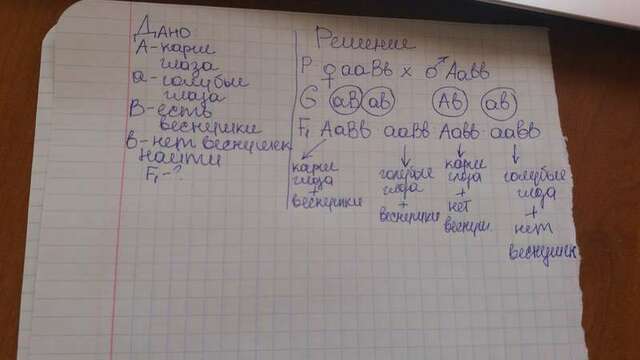 Дано
А-карие
глаза
а-голубые
глаза
В-есть
веснушки
в-нет веснушек
найти
F₁-?
Решение
P ♀ ааВв х ♂ Аавв
G аВ ав Ав ав
F₁ АаВв ааВв Аавв аавв
карие
глаза
+
веснушки
голубые
глаза
+
веснушки
карие
глаза
+
нет
веснуш.
голубые
глаза
+
нет
веснушек